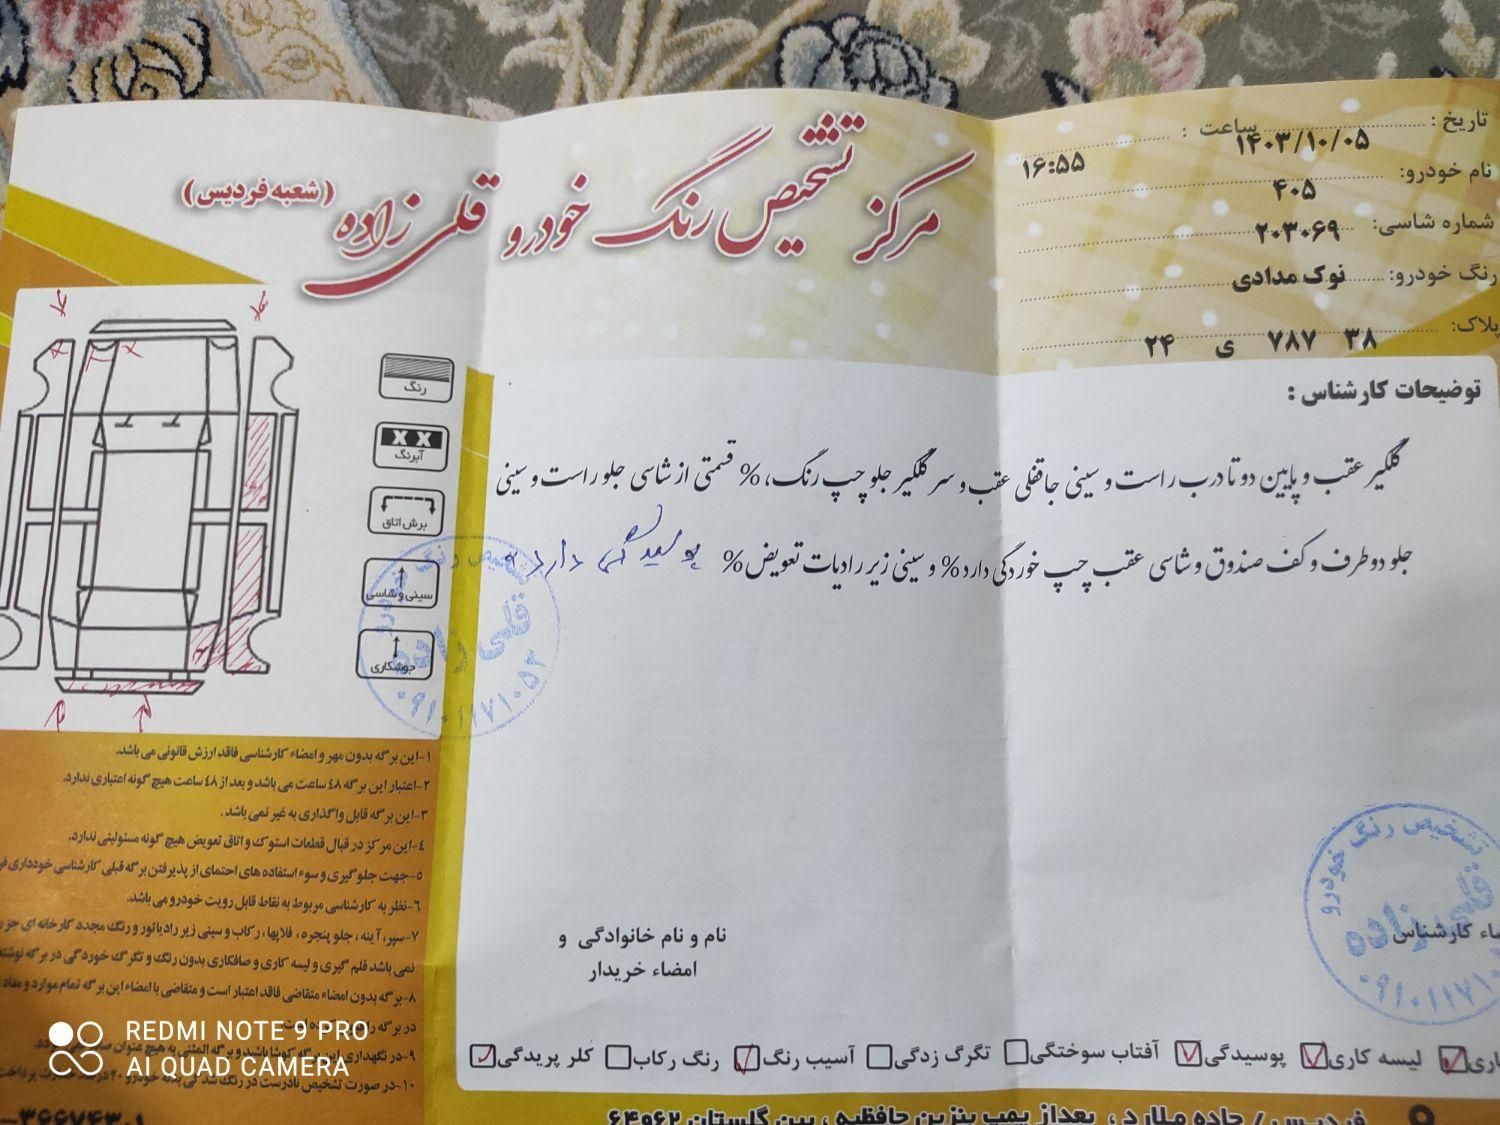 مرکز تشخیص رنگ خودرو قلی زاده (شعبه فردیس)
تاریخ : ۱۴۰۳/۱۰/۰۵ ساعت : ۱۶:۵۵
نام خودرو: ۴۰۵
شماره شاسی: ۲۰۳۰۶۹
رنگ خودرو: نوک مدادی
پلاک: ۳۸ ۷۸۷ ی ۲۴
توضیحات کارشناس :
گلگیر عقب و پایین دو تا درب راست و سینی جاقفلی عقب و سر گلگیر جلو چپ رنگ، % قسمتی از شاسی جلو راست و سینی
جلو دو طرف و کف صندوق و شاسی عقب چپ خوردگی دارد % و سینی زیر رادیات تعویض % پوسیدگی دارد
رنگ
X X
آبرنگ
برش اتاق
سینی و شاسی
جوشکاری
تشخیص رنگ خودرو
قلی زاده
۰۹۱۰۱۱۷۱۰۵۲
۱-این برگه بدون مهر و امضاء کارشناسی فاقد ارزش قانونی می باشد.
۲-اعتبار این برگه ٤٨ ساعت می باشد و بعد از ٤٨ ساعت هیچ گونه اعتباری ندارد.
۳-این برگه قابل واگذاری به غیر نمی باشد.
٤-این مرکز در قبال قطعات استوک و اتاق تعویض هیچ گونه مسئولیتی ندارد.
۵-جهت جلوگیری و سوء استفاده های احتمای از پذیرفتن برگه قبلی کارشناسی خودداری
۶-نظر به کارشناسی مربوط به نقاط قابل رویت خودرو می باشد.
۷-سپر، آینه ، جلو پنجره ، فلاپها، رکاب و سینی زیر رادیاتور و رنگ مجدد کارخانه ای جز
نمی باشد قلم گیری و لیسه کاری و صافکاری بدون رنگ و تگرگ خوردگی در برگه
۸-برگه بدون امضاء متقاضی فاقد اعتبار است و متقاضی با امضاء این برگه تمام موارد و مفاد
در برگه را
۹-در نگهداری این برگه کوشا باشید و برگه المثنی به هیچ عنوان
۱۰-در صورت تشخیص نادرست در رنگ
نام و نام خانوادگی و
امضاء خریدار
کارشناس
تشخیص رنگ خودرو
قلی زاده
لیسه کاری پوسیدگی آفتاب سوختگی تگرگ زدگی آسیب رنگ رنگ رکاب کلر پریدگی
فردیس / جاده ملارد ، بعداز پمپ بنزین حافظیه ، بین گلستان ۶۲و۶۴
REDMI NOTE 9 PRO
AI QUAD CAMERA